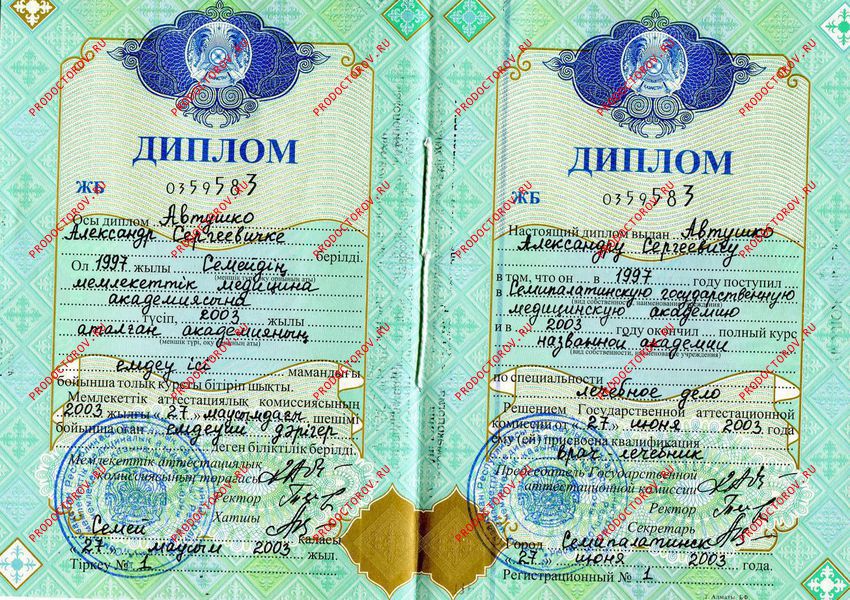 ДИПЛОМ
ЖБ 0359583
Осы диплом Автушко
Александр Сергеевичке берілді.
Ол 1997 жылы Семейдің
мемлекеттік медицина
академиясына
түсіп, 2003 жылы
аталған академияның
емдеу ісі мамандығы
бойынша толық курсты бітіріп шықты.
Мемлекеттік аттестациялық комиссиясының
2003 жылғы «27» маусымдағы шешімі
бойынша оған емдеуші дәрігер
деген біліктілік берілді.
Мемлекеттік аттестациялық
комиссиясының төрағасы
Ректор
Хатшы
Семей қаласы
«27» маусым 2003 жыл.
Тіркеу № 1
ДИПЛОМ
ЖБ 0359583
Настоящий диплом выдан Автушко
Александру Сергеевичу
в том, что он в 1997 году поступил
в Семипалатинскую государственную
(вид собственности, наименование учреждения)
медицинскую академию
и в 2003 году окончил полный курс
названной академии
(вид собственности, наименование учреждения)
по специальности
лечебное дело
Решением Государственной аттестационной
комиссии от «27» июня 2003 года
ему (ей) присвоена квалификация
врач-лечебник
Председатель Государственной
аттестационной комиссии
Ректор
Секретарь
Город Семипалатинск
«27» июня 2003 года.
Регистрационный № 1
PRODOCTOROV.RU